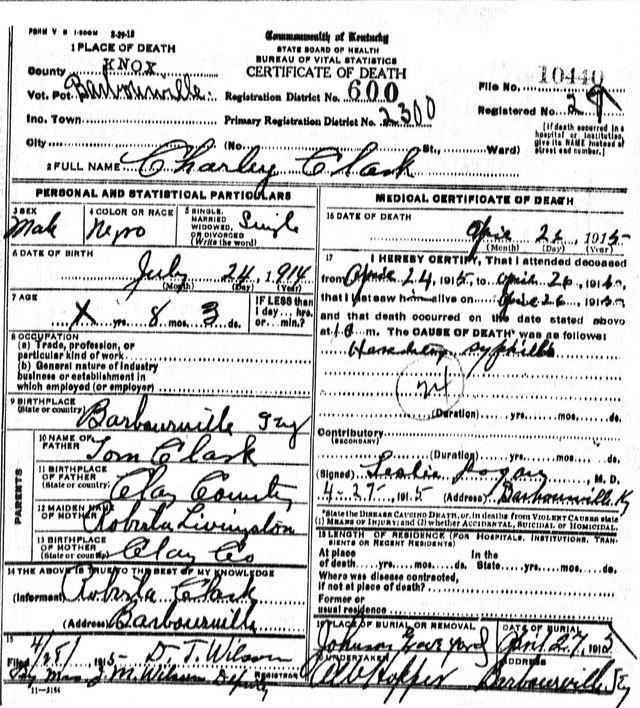 FORM V S 1-500M 2-20-12
Commonwealth of Kentucky
STATE BOARD OF HEALTH
BUREAU OF VITAL STATISTICS
CERTIFICATE OF DEATH
1 PLACE OF DEATH
County KNOX
Vot. Pct. Barbourville
Inc. Town
City
Registration District No. 600
Primary Registration District No. 2300
(No. St., Ward)
File No. 10440
Registered No. 29
[If death occurred in a hospital or institution, give its NAME instead of street and number.]
2 FULL NAME Charley Clark
PERSONAL AND STATISTICAL PARTICULARS
3 SEX Male
4 COLOR OR RACE Negro
5 SINGLE, MARRIED WIDOWED, OR DIVORCED (Write the word) Single
6 DATE OF BIRTH July 24, 1914
(Month) (Day) (Year)
7 AGE X yrs. 8 mos. 3 ds.
IF LESS than 1 day... hrs. or... min.?
8 OCCUPATION
(a) Trade, profession, or particular kind of work
(b) General nature of industry business or establishment in which employed (or employer)
9 BIRTHPLACE (State or country) Barbourville
PARENTS
10 NAME OF FATHER Tom Clark
11 BIRTHPLACE OF FATHER (State or country) Clay County
12 MAIDEN NAME OF MOTHER Robsta Livingston
13 BIRTHPLACE OF MOTHER (State or country) Clay Co
14 THE ABOVE IS TRUE TO THE BEST OF MY KNOWLEDGE
(Informant) Clark
(Address) Barbourville
15 Filed 4/28/ 1915 D. T. Wilson REGISTRAR
By Mrs J. M. Wilson Deputy
11-3184
MEDICAL CERTIFICATE OF DEATH
16 DATE OF DEATH April 26, 1915
(Month) (Day) (Year)
17 I HEREBY CERTIFY, That I attended deceased
from April 24, 1915, to April 26, 1915,
that I last saw him alive on April 26, 1915,
and that death occurred on the date stated above
at m. The CAUSE OF DEATH was as follows:
Hereditary syphillis
24
(Duration) yrs. mos. ds.
Contributory (SECONDARY)
(Duration) yrs. mos. ds.
(Signed) Leslie Logan, M. D.
4-27-, 1915 (Address) Barbourville Ky
*State the DISEASE CAUSING DEATH, or, in deaths from VIOLENT CAUSES state (1) MEANS OF INJURY; and (2) whether ACCIDENTAL, SUICIDAL or HOMICIDAL
18 LENGTH OF RESIDENCE (FOR HOSPITALS, INSTITUTIONS, TRANSIENTS OR RECENT RESIDENTS)
At place of death yrs. mos. ds. In the State yrs. mos. ds.
Where was disease contracted, if not at place of death?
Former or usual residence
19 PLACE OF BURIAL OR REMOVAL Johnson Grave Yard
DATE OF BURIAL April 27, 1915
20 UNDERTAKER Hopper
ADDRESS Barbourville Ky